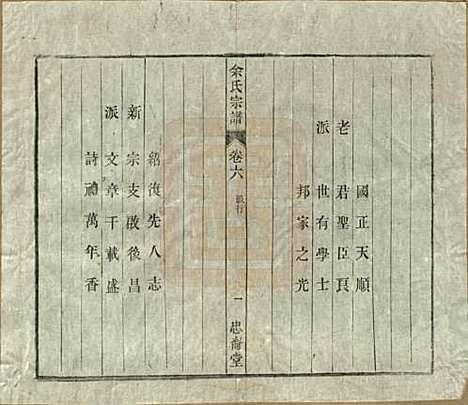 國正天順
老 君聖臣良
派 世有學士
邦家之光
余氏宗譜 卷六 一 忠裔堂
紹復先人志
新 宗支啟後昌
派 文章千載盛
詩禮萬年香